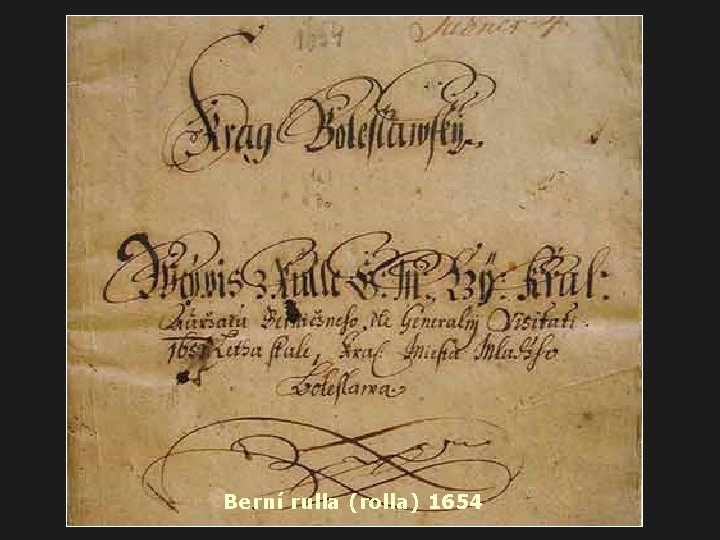 1654
Krag Boleslawský.
Weypis z Rulle C: M: Bÿ: Kral:
Auržadu Berničneho, dle Generalnj Visitati
1651 Letha stale, Kral: Miesta Mladeho
Boleslawa.
Berní rulla (rolla) 1654